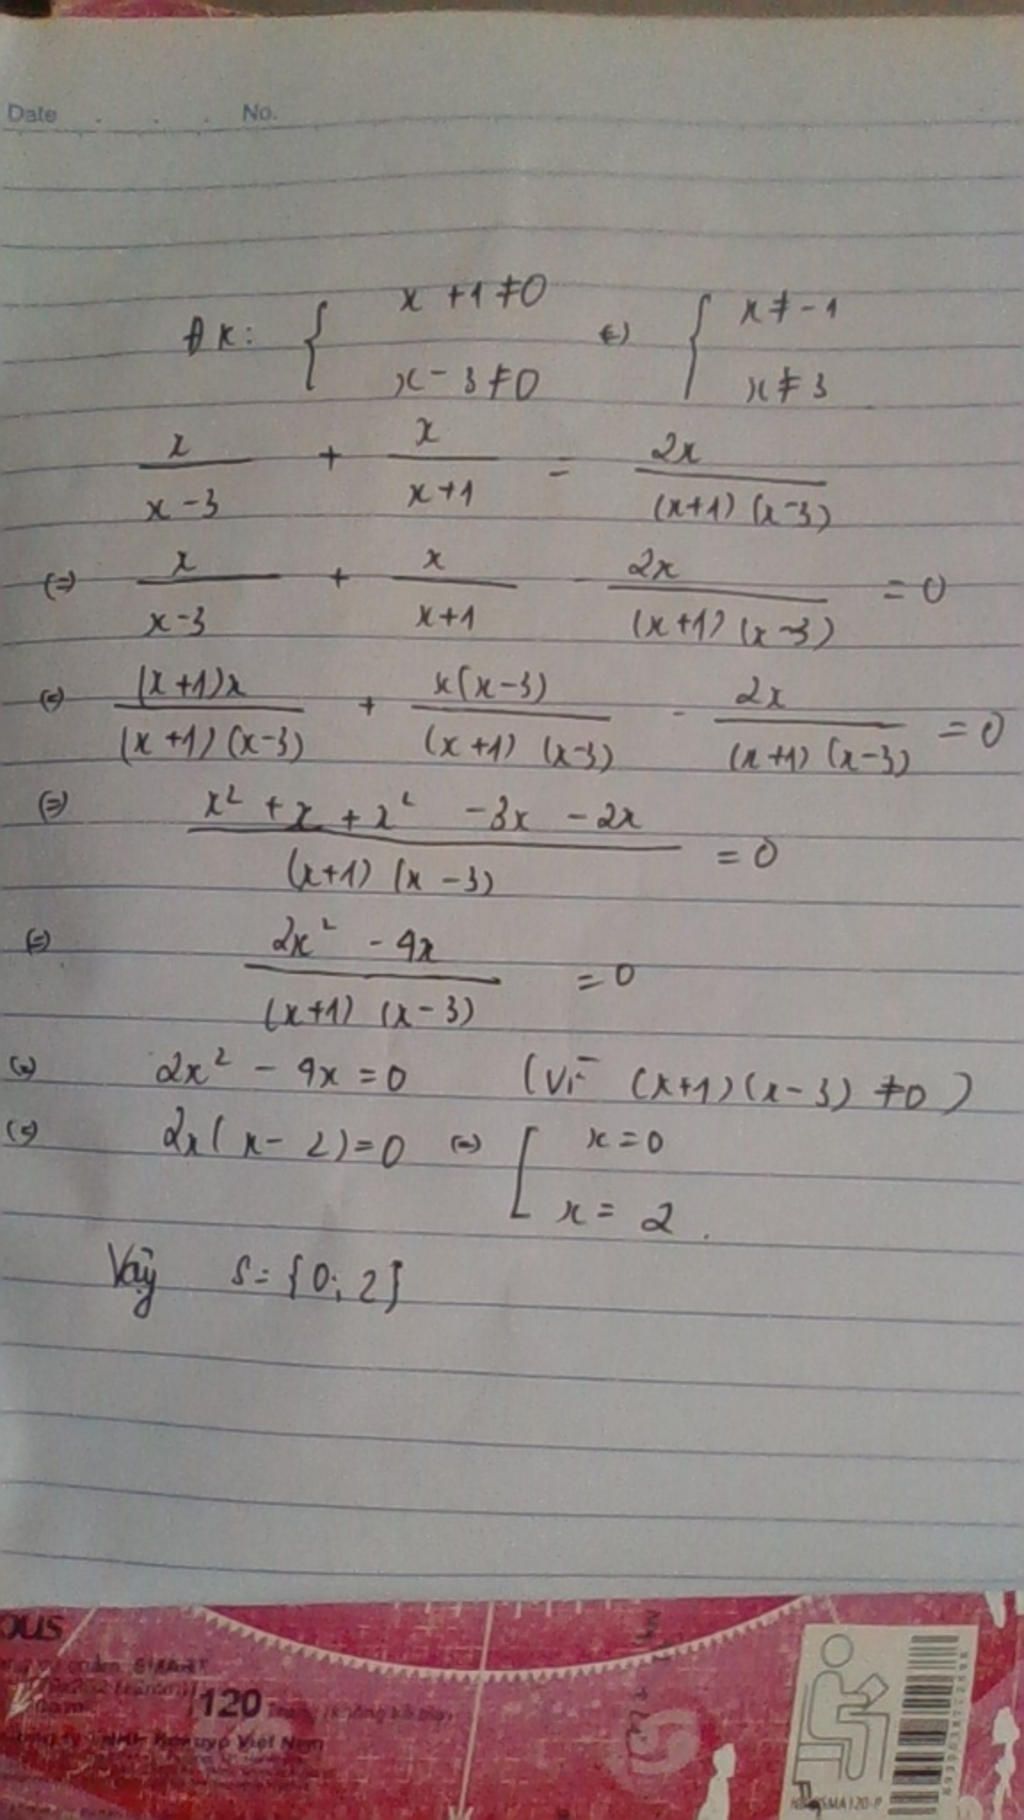 Date No.
ĐK: { x + 1 ≠ 0 (=) { x ≠ - 1
x - 3 ≠ 0 x ≠ 3
x/(x - 3) + x/(x + 1) = 2x/((x+1) (x-3))
(=) x/(x-3) + x/(x+1) - 2x/((x+1) (x-3)) = 0
(=) (x+1)x/((x+1) (x-3)) + x(x-3)/((x+1) (x-3)) - 2x/((x+1) (x-3)) = 0
(=) (x² + x + x² - 3x - 2x)/((x+1) (x - 3)) = 0
(=) (2x² - 4x)/((x+1) (x-3)) = 0
(=) 2x² - 4x = 0 (Vì (x+1)(x-3) ≠ 0)
(=) 2x(x - 2) = 0 (=) [ x = 0
x = 2.
Vậy S = {0; 2}
120
Việt Nam